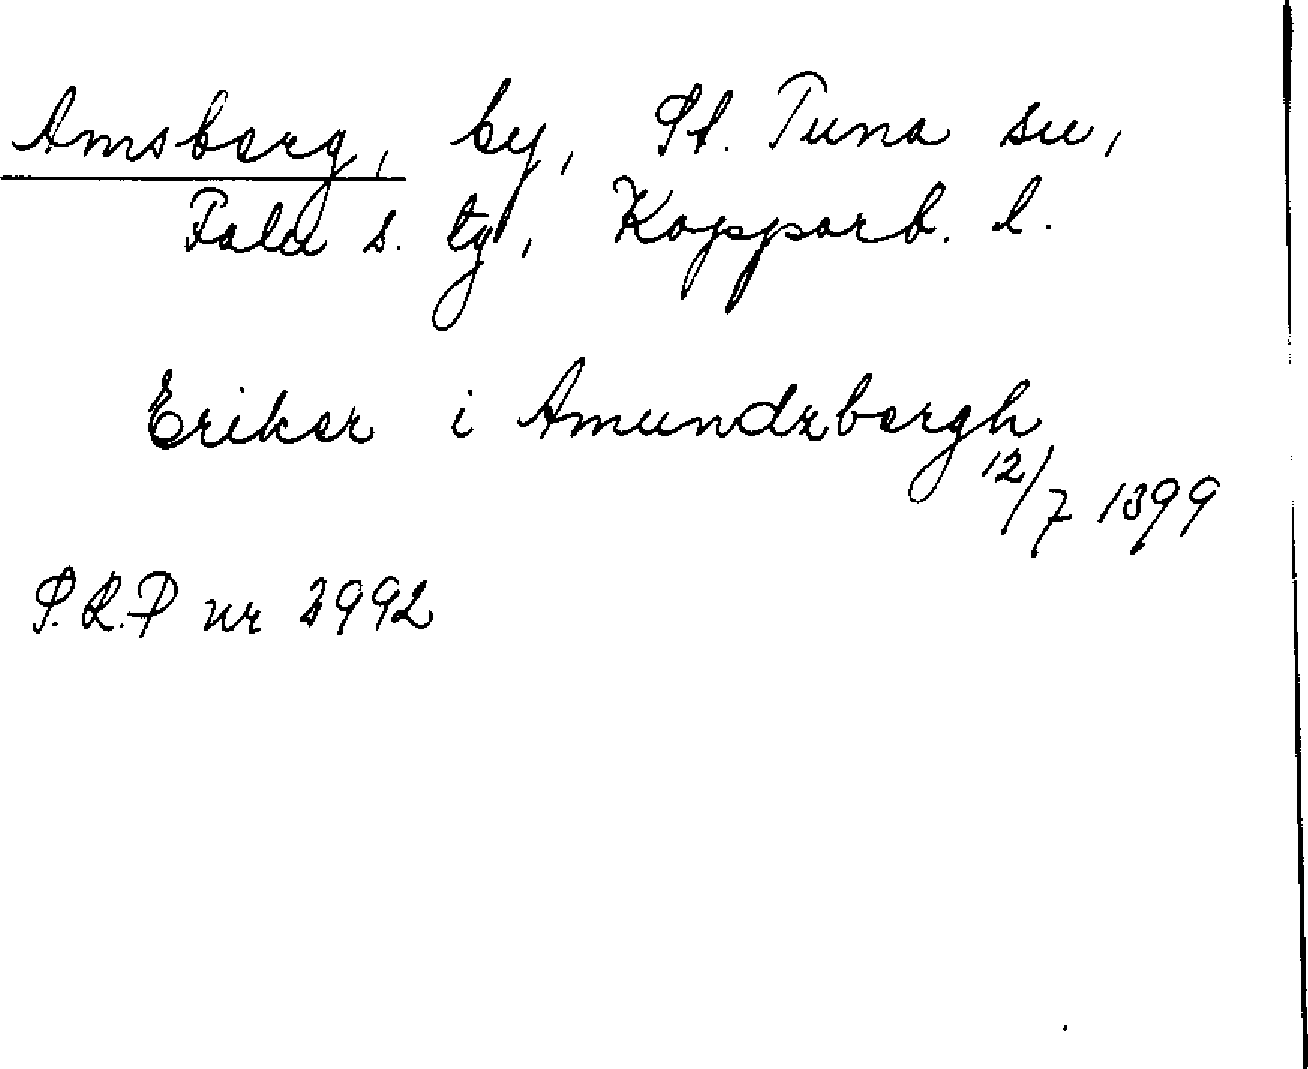 Amsberg, by, St. Tuna sn,
Falu s. tg, Kopparb. l.
Eriker i Amundzbergh
12/7 1399
S.R.P nr 2992